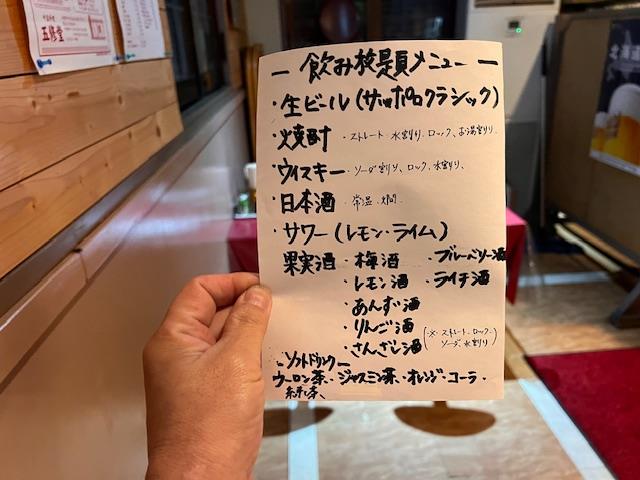 五修堂
ー 飲み放題メニュー ー
・生ビール(サッポロクラシック)
・焼酎 ・ストレート 水割り、ロック、お湯割り、
・ウィスキー ・ソーダ割り、ロック、水割り、
・日本酒 ・常温・燗
・サワー(レモン・ライム)
果実酒 ・梅酒 ・ブルーベリー酒
・レモン酒 ・ライチ酒
・あんず酒
・りんご酒
・さんざし酒 (※ ストレート・ロック・ソーダ、水割り)
・ソフトドリンク
ウーロン茶・ジャスミン茶・オレンジ・コーラ・
緑茶、